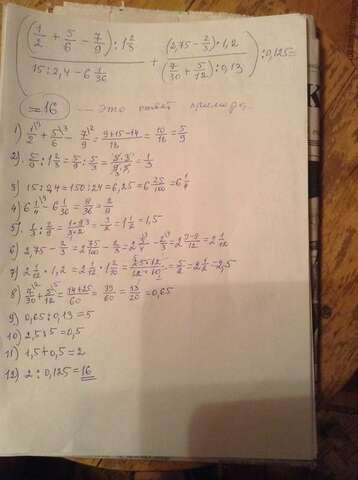 ( (1/2 + 5/6 − 7/9) : 1 2/3 / 15 : 2,4 − 6 1/36 + (2,75 − 2/3) · 1,2 / (7/30 + 5/12) : 0,13 ) : 0,125 =
= 16 — это ответ примера.
1) 1/2 + 5/6 − 7/9 = 9+15−14/18 = 10/18 = 5/9
2) 5/9 : 1 2/3 = 5/9 · 3/5 = 5·3/9·5 = 1/3
3) 15 : 2,4 = 150 : 24 = 6,25 = 6 25/100 = 6 1/4
4) 6 1/4 − 6 1/36 = 8/36 = 2/9
5) 1/3 : 2/9 = 1·9/3·2 = 3/2 = 1 1/2 = 1,5
6) 2,75 − 2/3 = 2 75/100 − 2/3 = 2 3/4 − 2/3 = 2 9−8/12 = 2 1/12
7) 2 1/12 · 1,2 = 2 1/12 · 1 2/10 = 25·12/12·10 = 5/2 = 2 1/2 = 2,5
8) 7/30 + 5/12 = 14+25/60 = 39/60 = 13/20 = 0,65
9) 0,65 : 0,13 = 5
10) 2,5 : 5 = 0,5
11) 1,5 + 0,5 = 2
12) 2 : 0,125 = 16